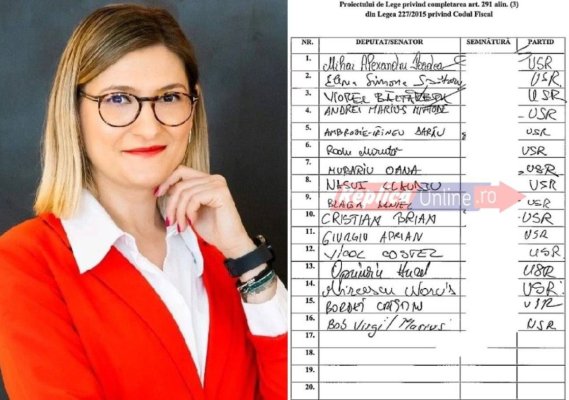 Proiectului de Lege privind completarea art. 291 alin. (3)
din Legea 227/2015 privind Codul Fiscal
NR. DEPUTAT/SENATOR SEMNĂTURĂ PARTID
1. Mihai Alexandru USR
2. Elena Simona USR
3. VIOREL BĂLTĂREȚU USR
4. ANDREI MARIUS USR
5. AMBROZIE-IRINEU DARĂU USR
6. Radu USR
7. MURARIU OANA USR
8. NASUI CLAUDIU USR
9. BLAGA USR
10. CRISTIAN BRIAN USR
11. GIURGIU ADRIAN USR
12. COSTEL USR
13. USR
14. USR
15. CRISTIAN USR
16. Bob Virgil Marius USR
17.
18.
19.
20.
Replica Online.ro